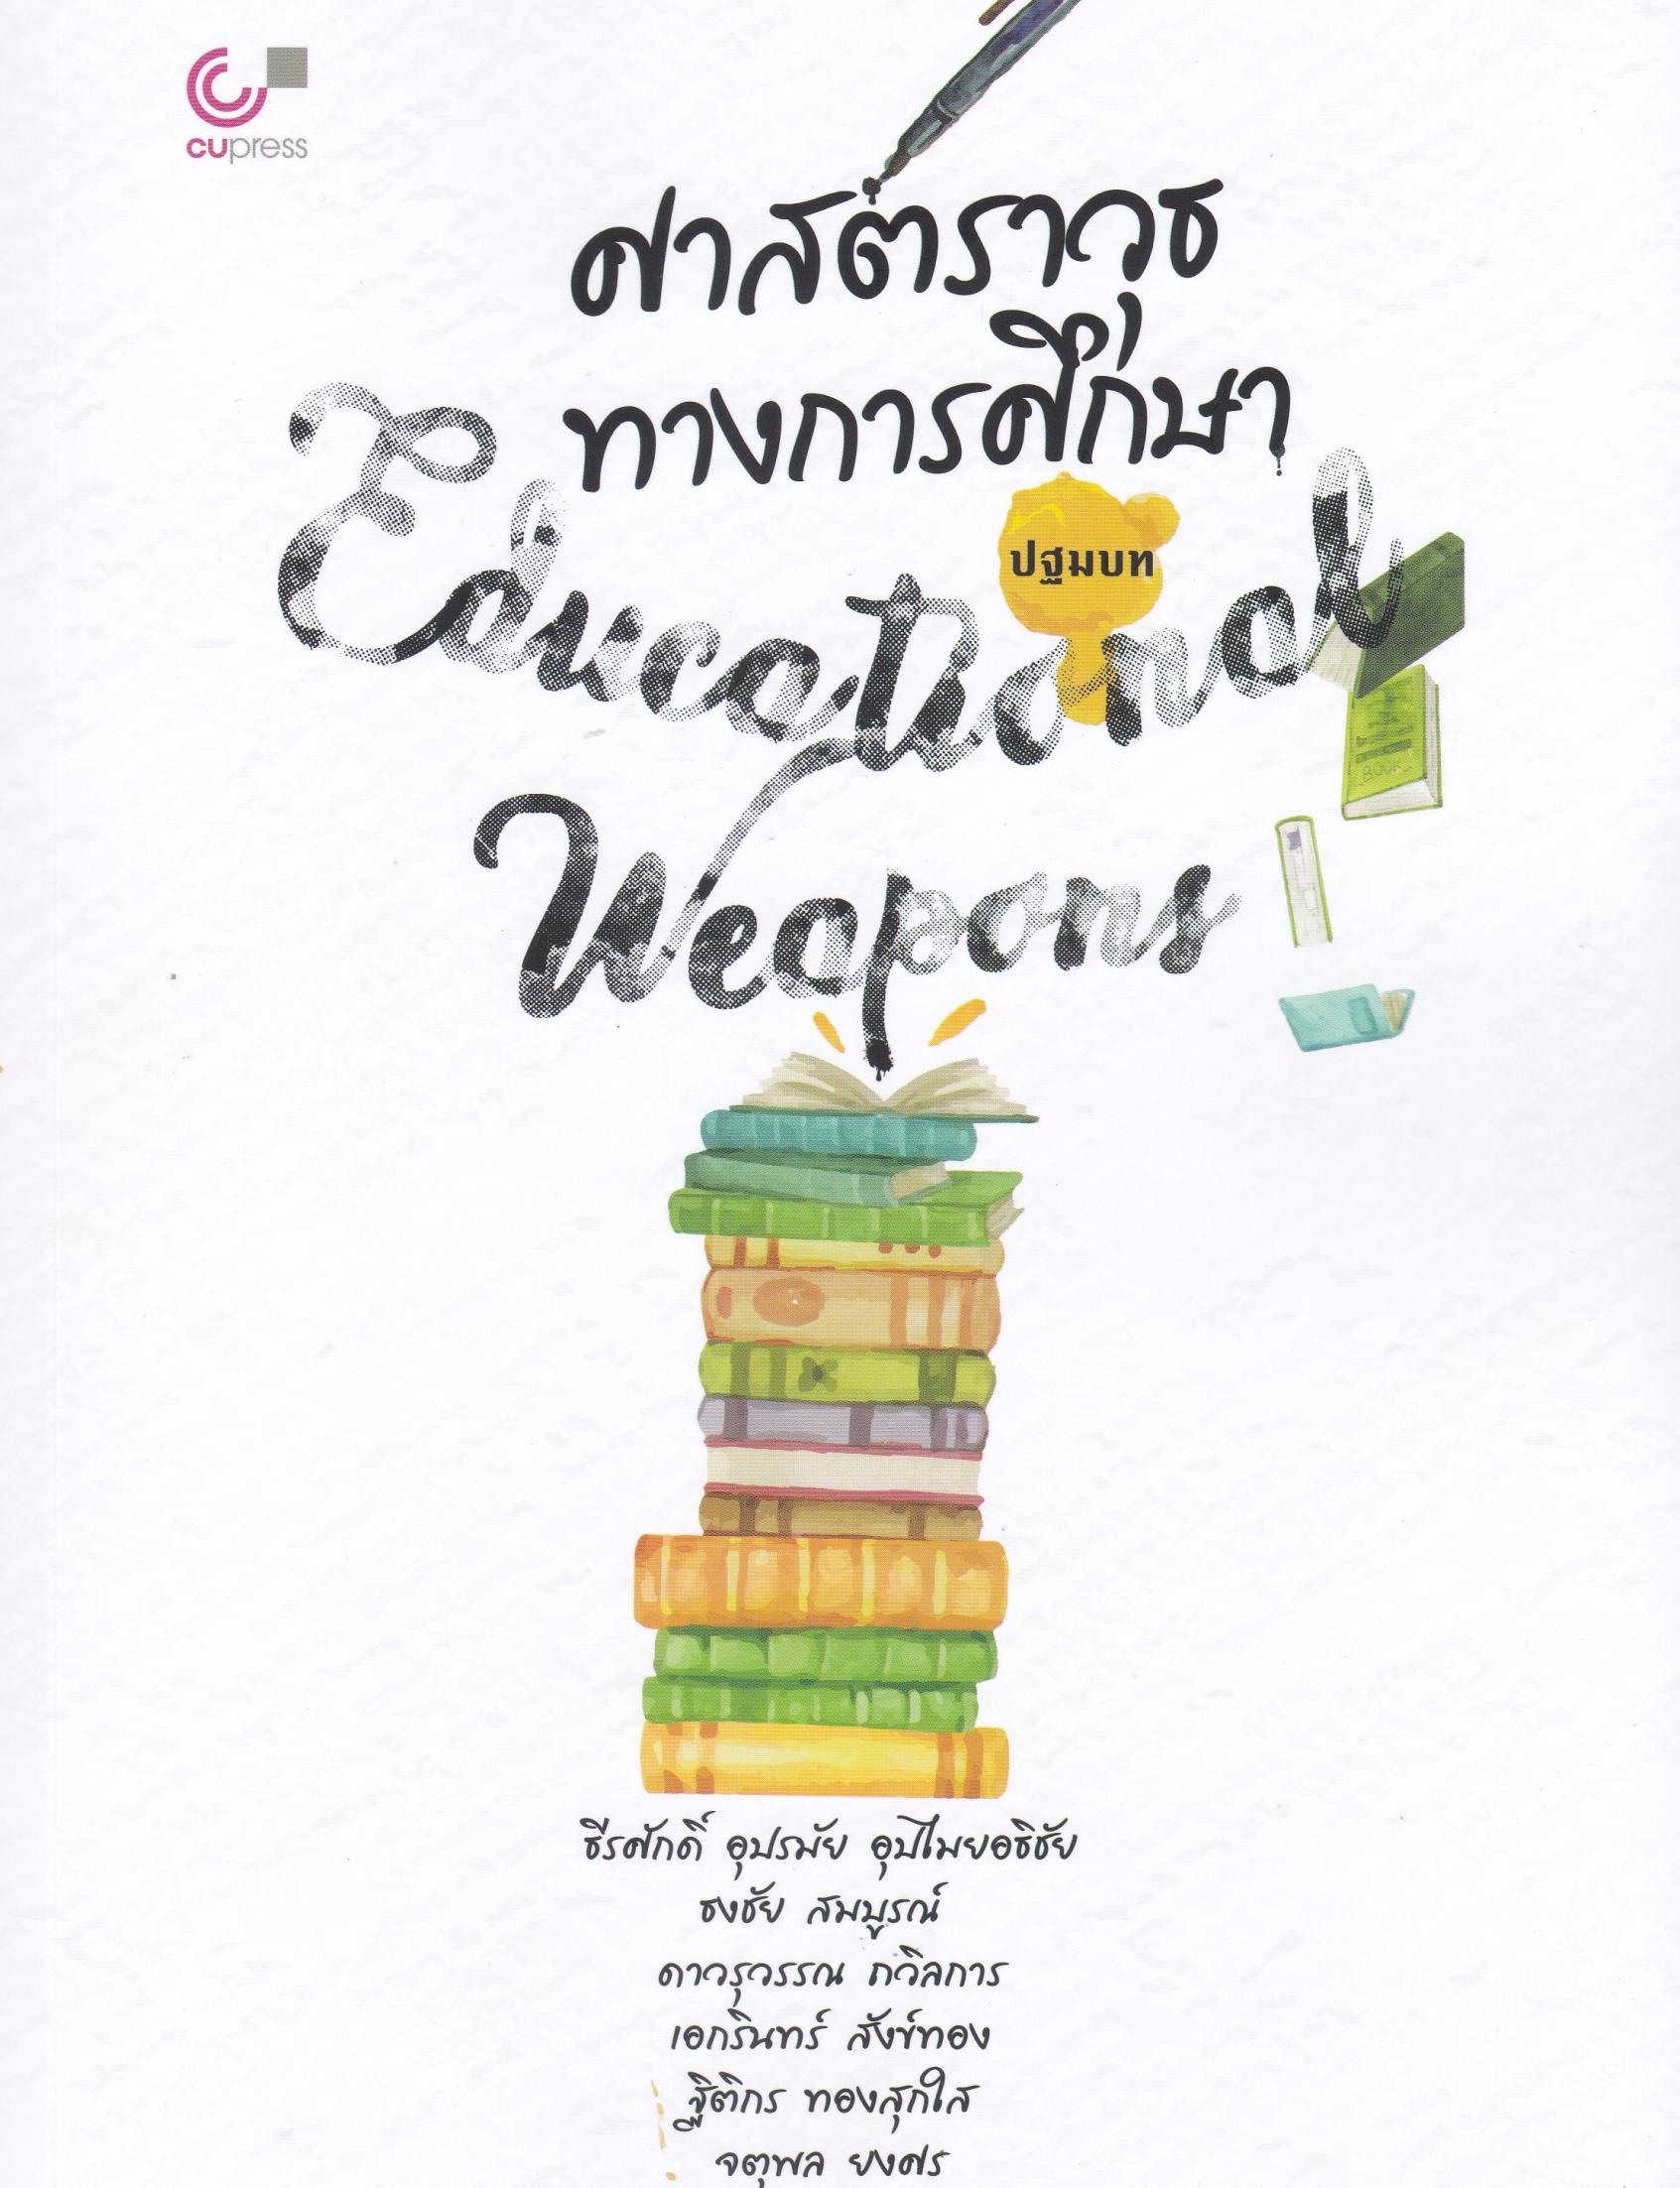 cupress
ศาสตราวุธ
ทางการศึกษา
ปฐมบท
Educational
Weapons
BOOK
ธีรศักดิ์ อุปรมัย อุปไมยอธิชัย
ธงชัย สมบูรณ์
ดาวรุวรรณ ถวิลการ
เอกรินทร์ สังข์ทอง
ฐิติกร ทองสุกใส
จตุพล ยงศร